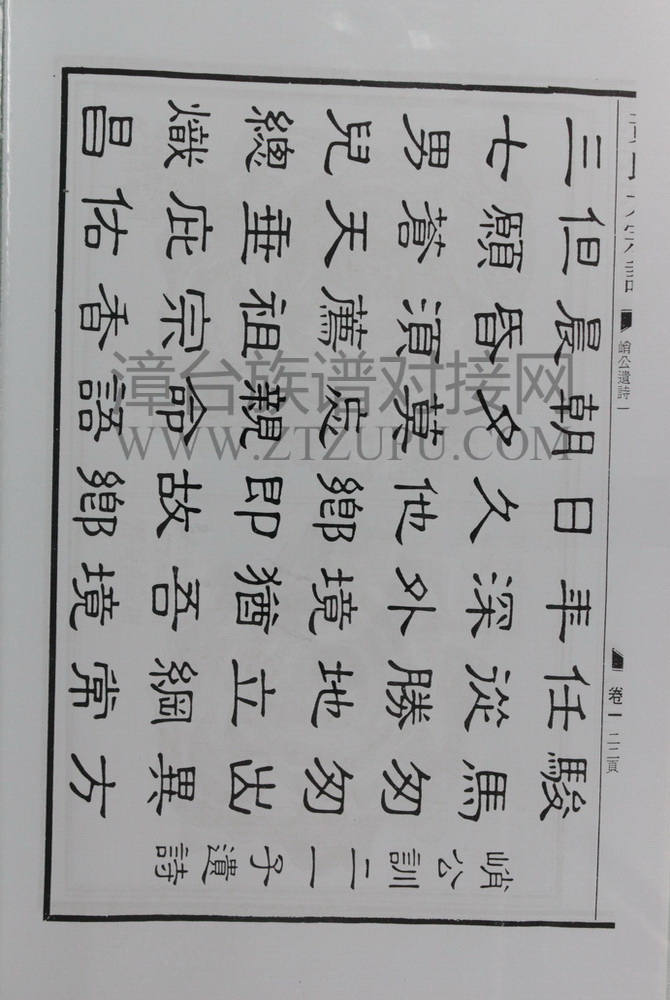 峭公訓二一子遺詩
駿馬匆匆出異方
任從勝地立綱常
年深外境猶吾境
日久他鄉即故鄉
朝夕莫忘親命語
晨昏須薦祖宗香
但願蒼天垂庇佑
三七男兒總熾昌
峭公遺詩一
卷一 二二頁
漳台族谱对接网
WWW.ZTZUPU.COM